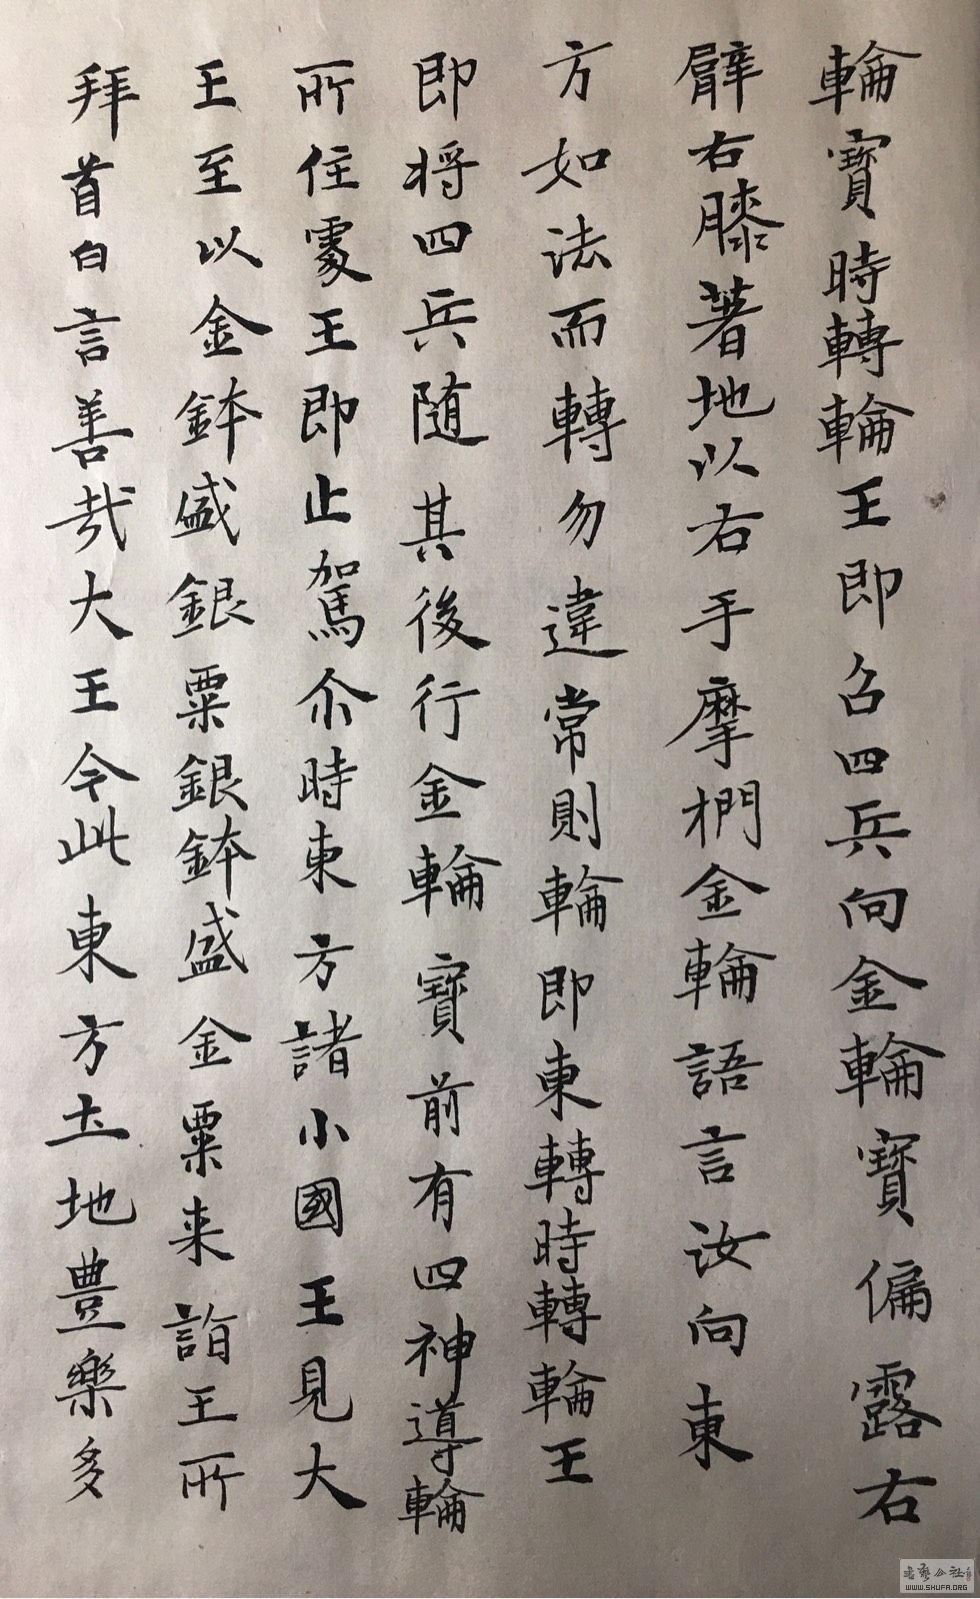 輪寶時轉輪王即召四兵向金輪寶偏露右
臂右膝著地以右手摩捫金輪語言汝向東
方如法而轉勿違常則輪即東轉時轉輪王
即将四兵随其後行金輪寶前有四神導輪
所住處王即止駕尒時東方諸小國王見大
王至以金鉢盛銀粟銀鉢盛金粟来詣王所
拜首白言善哉大王今此東方土地豊樂多
书艺公社
WWW.SHUFA.ORG